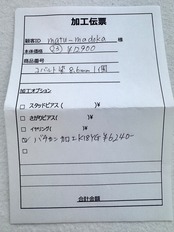 加工伝票
顧客ID matu-madoka 様
本体価格 (S3) ¥12900
商品番号
コバルト崔 8.6mm 1個
加工オプション
□ スタッドピアス( )¥
□ さがりピアス( )¥
□ イヤリング( )¥
☑ バチカン加工K18YG ¥6,240-
□
□
合計金額